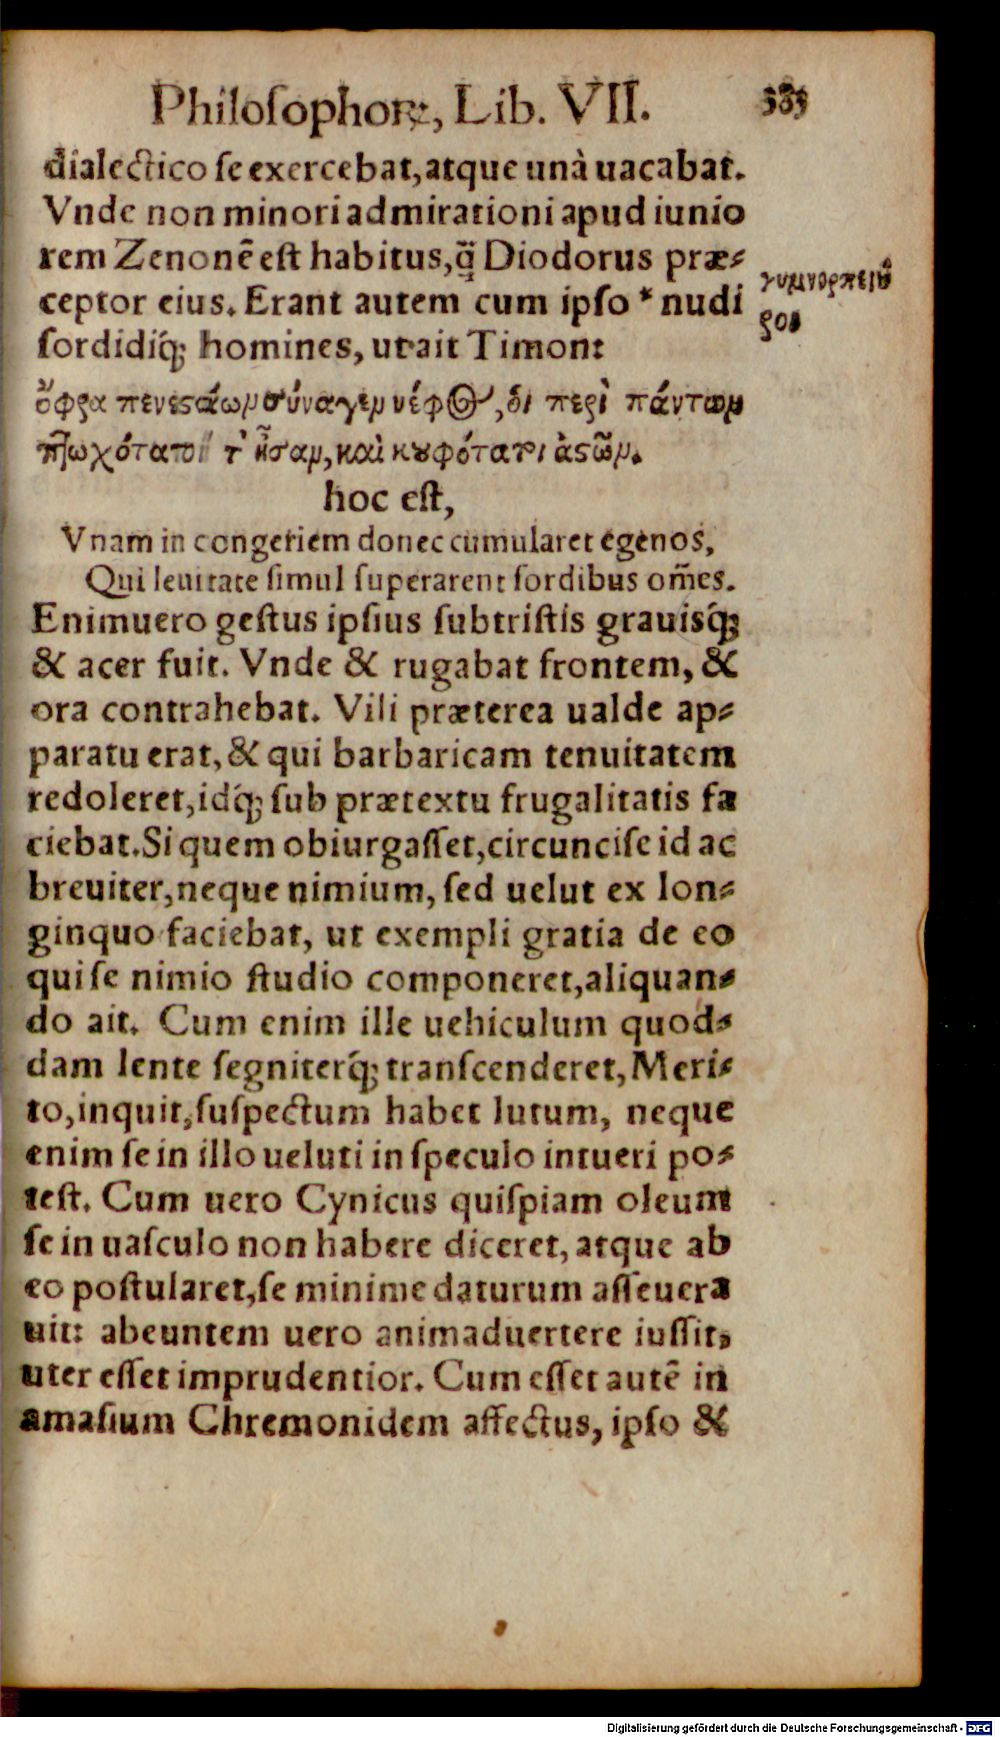 Philoſophoꝝ, Lib. VII. 385
dialectico ſe exercebat, atque unà uacabat.
Vnde non minori admirationi apud iunio
rem Zenonē eſt habitus, q̃ Diodorus præ-
ceptor eius. Erant autem cum ipſo * nudi
ſordidiq́; homines, ut ait Timon:
ὄφρα πενεστάων σύναγεν νέφος, οἳ περὶ πάντων
πτωχότατοί τ' ἦσαν, καὶ κουφότατοι ἀστῶν.
hoc eſt,
Vnam in congeriem donec cumularet egenos,
Qui leuitate ſimul ſuperarent ſordibus om̃es.
Enimuero geſtus ipſius ſubtriſtis grauisq́;
& acer fuit. Vnde & rugabat frontem, &
ora contrahebat. Vili præterea ualde ap-
paratu erat, & qui barbaricam tenuitatem
redoleret, idq́; ſub prætextu frugalitatis fa
ciebat. Si quem obiurgaſſet, circunciſe id ac
breuiter, neque nimium, ſed uelut ex lon-
ginquo faciebat, ut exempli gratia de eo
qui ſe nimio ſtudio componeret, aliquan-
do ait. Cum enim ille uehiculum quod-
dam lente ſegniterq́; tranſcenderet, Meri-
to, inquit, ſuſpectum habet lutum, neque
enim ſe in illo ueluti in ſpeculo intueri po-
teſt. Cum uero Cynicus quiſpiam oleum
ſe in uaſculo non habere diceret, atque ab
eo poſtularet, ſe minime daturum aſſeuera
uit: abeuntem uero animaduertere iuſſit,
uter eſſet imprudentior. Cum eſſet autē in
amaſium Chremonidem affectus, ipſo &
Digitalisierung gefördert durch die Deutsche Forschungsgemeinschaft - DFG